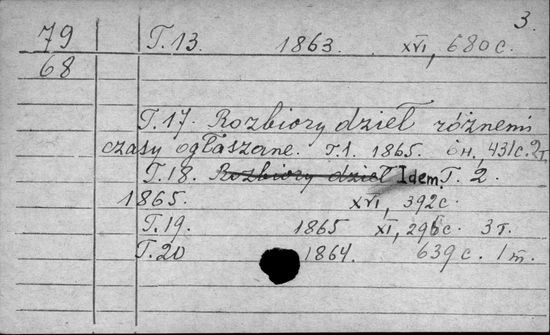 3.
79 T.13. 1863. XVI, 680 c.
68
T.17. Rozbiory dzieł różnemi
czasy ogłaszane. T.1. 1865. 6н., 431 c. 2т.
T.18. Rozbiory dzieł Idem. T. 2.
1865. XVI, 392 c.
T.19. 1865 XI, 296 c. 3т.
T.20 1864. 639 c. 1 m.